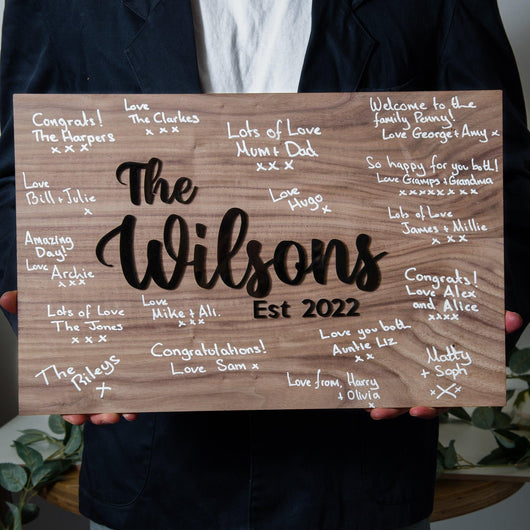 Congrats!
The Harpers
x x x
Love
The Clarkes
x x x
Lots of Love
Mum + Dad
x x x
Welcome to the
family Penny!
Love George + Amy x
So happy for you both!
Love Gramps + Grandma
x x x x x x x x
Love
Bill + Julie
x
The
Wilsons
Est 2022
Love
Hugo
x
Lots of Love
James + Millie
x x x
Amazing
Day!
Love
Archie
x x x
Congrats!
Love Alex
and Alice
x x x x
Lots of Love
The Jones
x x x x
Love
Mike + Ali.
x x x x
Love you both
Auntie Liz
x x
The
Rileys
x
Congratulations!
Love Sam x
Love from, Harry
+ Olivia
x
Matty
+ Soph
x x x